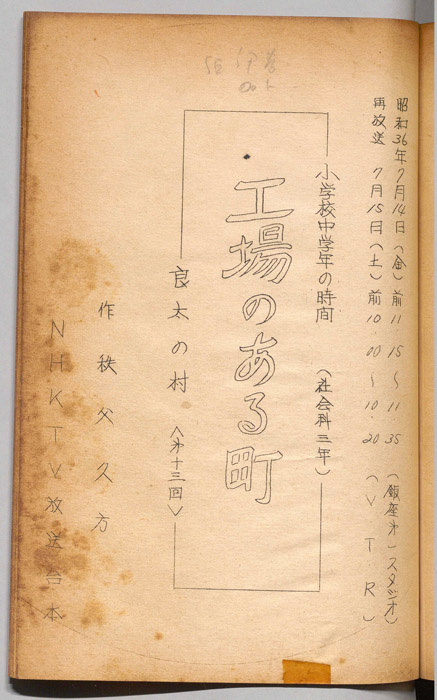 昭和36年7月14日(金)前11 15〜11 35(銀座オ一スタジオ)
再放送 7月15日(土)前10 00〜10 20(VTR)
小学校中学年の時間 (社会科三年)
工場のある町
良太の村 〈オ十三回〉
作 秩父久方
NHKTV放送台本